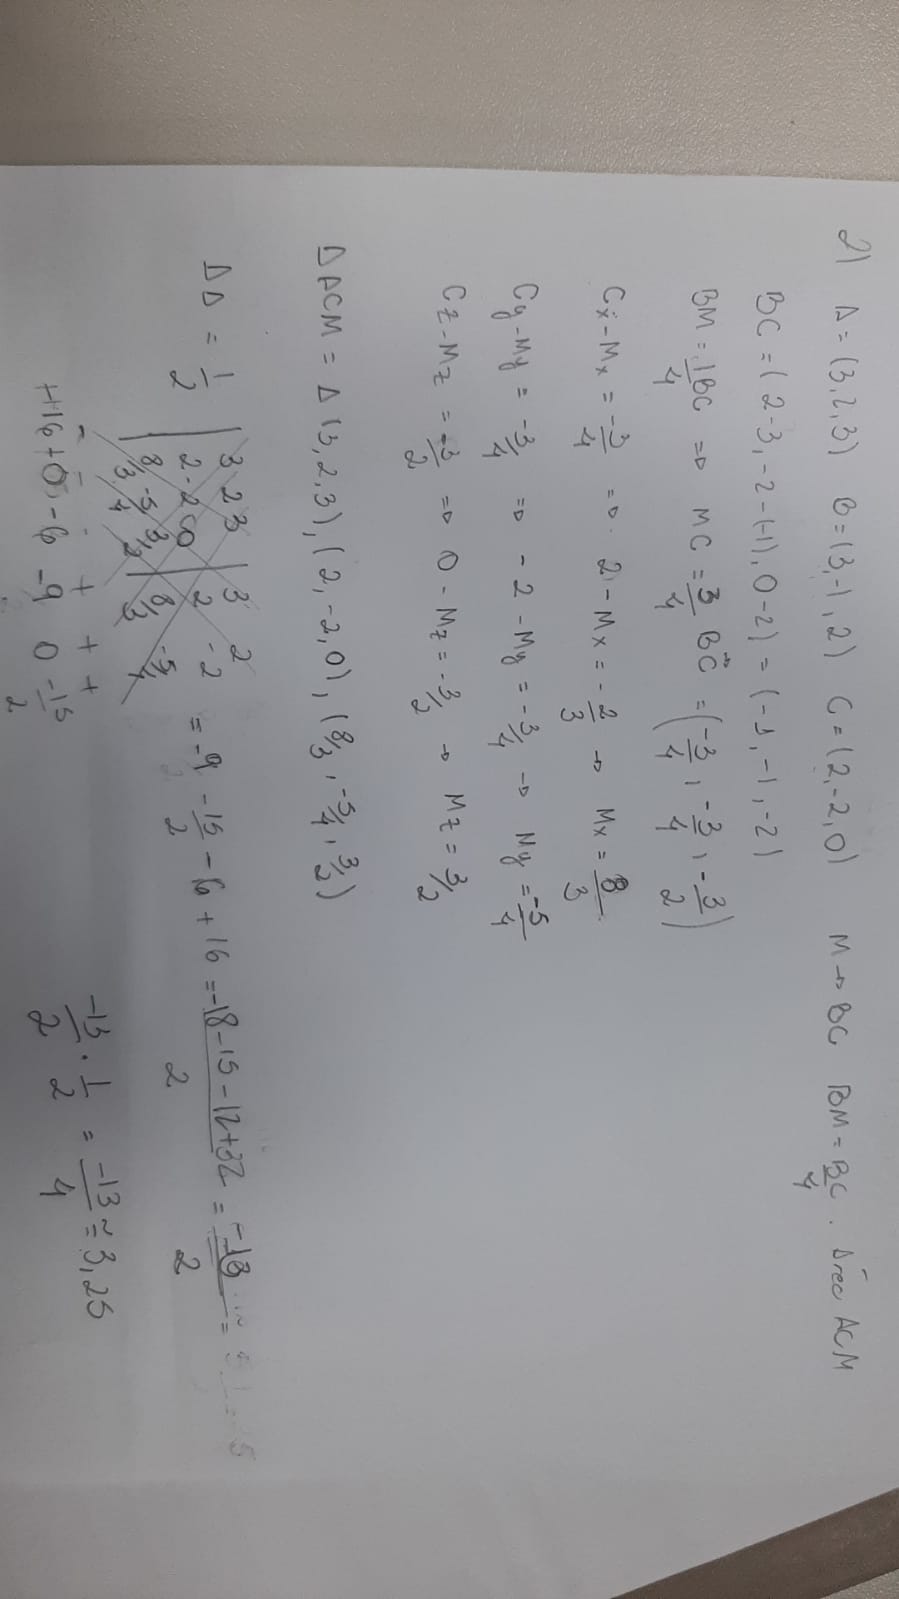 2) A = (3,2,3) B = (3,-1,2) C = (2,-2,0) M → BC BM = BC/4. Área ACM
BC = (2-3, -2-(-1), 0-2) = (-1, -1, -2)
BM = 1BC/4 ⇒ MC = 3/4 BC⃗ = (-3/4, -3/4, -3/2)
Cx - Mx = -3/4 ⇒ 2 - Mx = -2/3 → Mx = 8/3
Cy - My = -3/4 ⇒ -2 - My = -3/4 → My = -5/4
Cz - Mz = -3/2 ⇒ 0 - Mz = -3/2 → Mz = 3/2
Δ ACM = Δ (3,2,3), (2,-2,0), (8/3, -5/4, 3/2)
3 2 3 | 3 2
ΔΔ = 1/2 | 2 -2 0 | 2 -2 = -9 - 15/2 - 6 + 16 = -18-15-12+32/2 = -13/2
8/3 -5/4 3/2 | 8/3 -5/4
- - - + + +
+16 +0 -6 -9 0 -15/2
-13/2 . 1/2 = -13/4 ≅ 3,25